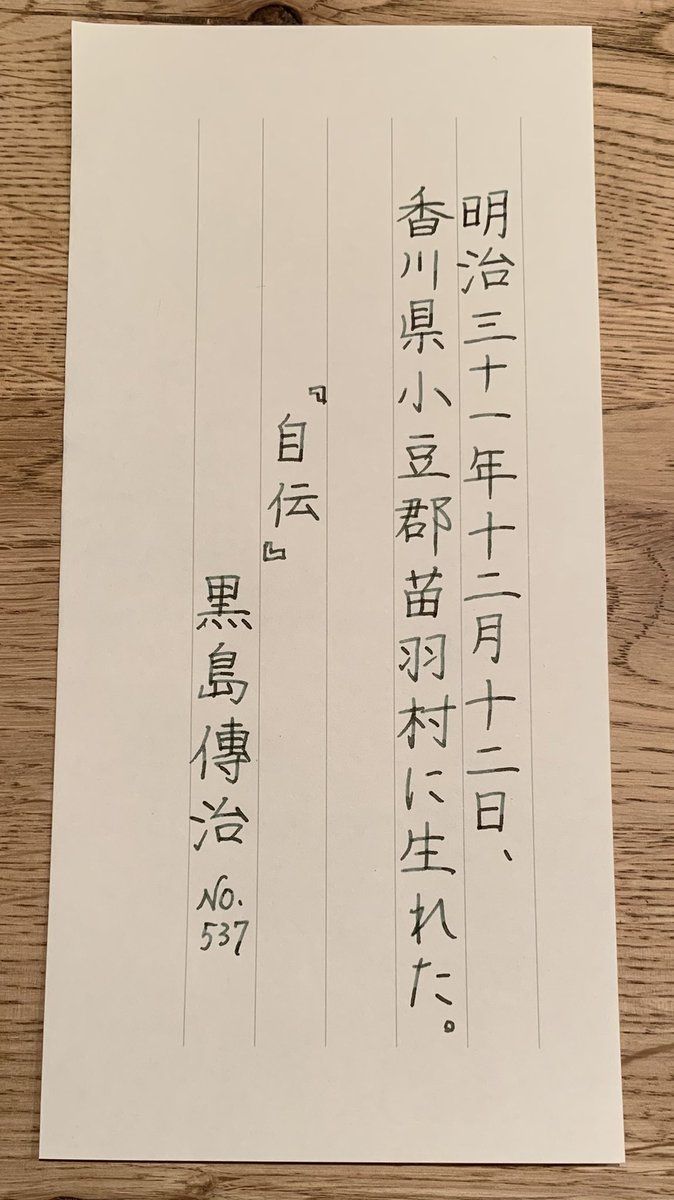 明治三十一年十二月十二日、
香川県小豆郡苗羽村に生れた。
『自伝』
黒島傳治 No.537